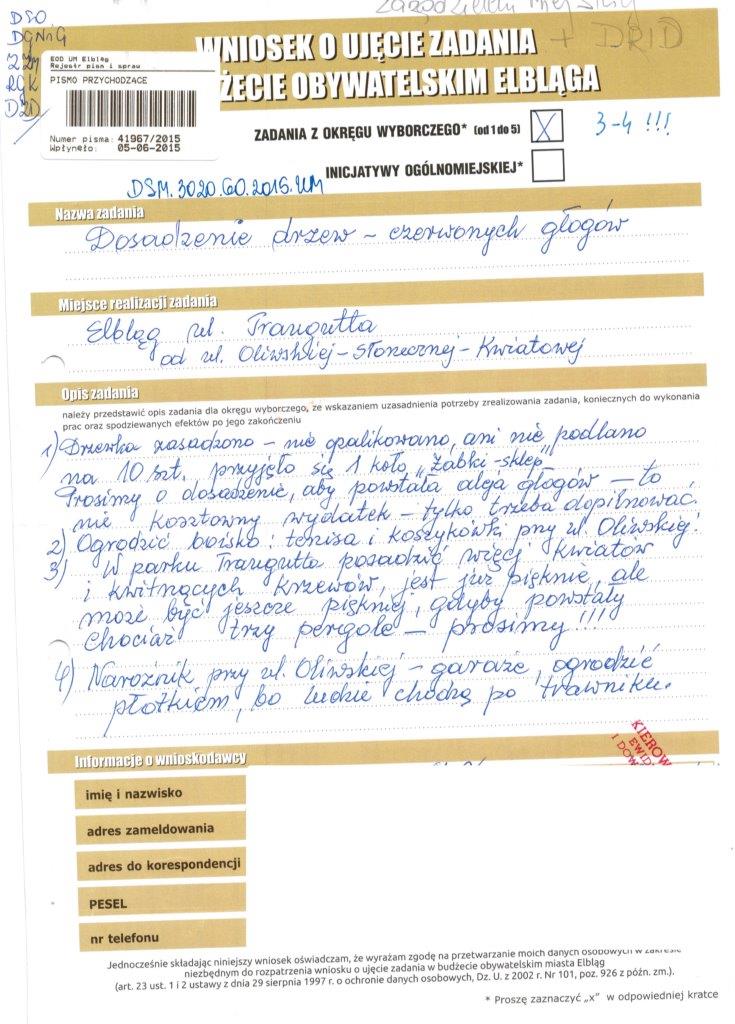 DSO
DGNiG
RGK
Zagadzielem Miejskiej
+ DRID
WNIOSEK O UJĘCIE ZADANIA
ŻECIE OBYWATELSKIM ELBLĄGA
EOD UM Elbląg
Rejestr pism i spraw
PISMO PRZYCHODZĄCE
Numer pisma: 41967/2015
Wpłynęło: 05-06-2015
ZADANIA Z OKRĘGU WYBORCZEGO* (od 1 do 5) X 3-4 !!!
INICJATYWY OGÓLNOMIEJSKIEJ*
DSM.3020.60.2015.UM
Nazwa zadania
Dosadzenie drzew – czerwonych głogów
Miejsce realizacji zadania
Elbląg ul. Traugutta
od ul. Oliwskiej – Słonecznej – Kwiatowej
Opis zadania
należy przedstawić opis zadania dla okręgu wyborczego, ze wskazaniem uzasadnienia potrzeby zrealizowania zadania, koniecznych do wykonania
prac oraz spodziewanych efektów po jego zakończeniu
1) Drzewka zasadzono – nie opalikowano, ani nie podlano
na 10 szt. przyjęło się 1 koło „Żabki-sklep"
Prosimy o dosadzenie, aby powstała aleja głogów – to
nie kosztowny wydatek – tylko trzeba dopilnować.
2) Ogrodzić boisko: tenisa i koszykówki przy ul. Oliwskiej!
3) W parku Traugutta posadzić więcej kwiatów
i kwitnących krzewów, jest już pięknie, ale
może być jeszcze piękniej, gdyby powstały
chociaż trzy pergole – prosimy!!!
4) Narożnik przy ul. Oliwskiej – garaże, ogrodzić
płotkiem, bo ludzie chodzą po trawniku.
KIEROW
EWID
I DOW
Informacje o wnioskodawcy
imię i nazwisko
adres zameldowania
adres do korespondencji
PESEL
nr telefonu
Jednocześnie składając niniejszy wniosek oświadczam, że wyrażam zgodę na przetwarzanie moich danych osobowych w zakresie
niezbędnym do rozpatrzenia wniosku o ujęcie zadania w budżecie obywatelskim miasta Elbląg
(art. 23 ust. 1 i 2 ustawy z dnia 29 sierpnia 1997 r. o ochronie danych osobowych, Dz. U. z 2002 r. Nr 101, poz. 926 z późn. zm.).
* Proszę zaznaczyć „x" w odpowiedniej kratce